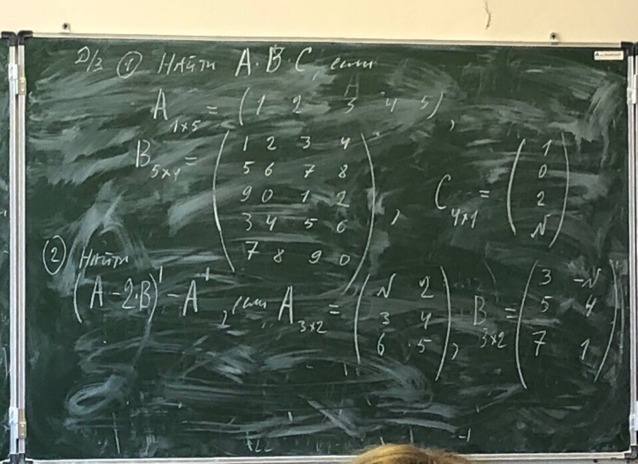 Д/з ① Найти A·B·C, если
A₁ₓ₅ = (1 2 3 4 5),
B₅ₓ₄ = ( 1 2 3 4
5 6 7 8
9 0 1 2
3 4 5 6
7 8 9 0 ),
C₄ₓ₁ = ( 1
0
2
N )
② Найти
(A - 2·B)' - A', если A₃ₓ₂ = ( N 2
3 4
6 5 ),
B₃ₓ₂ = ( 3 -N
5 4
7 1 )